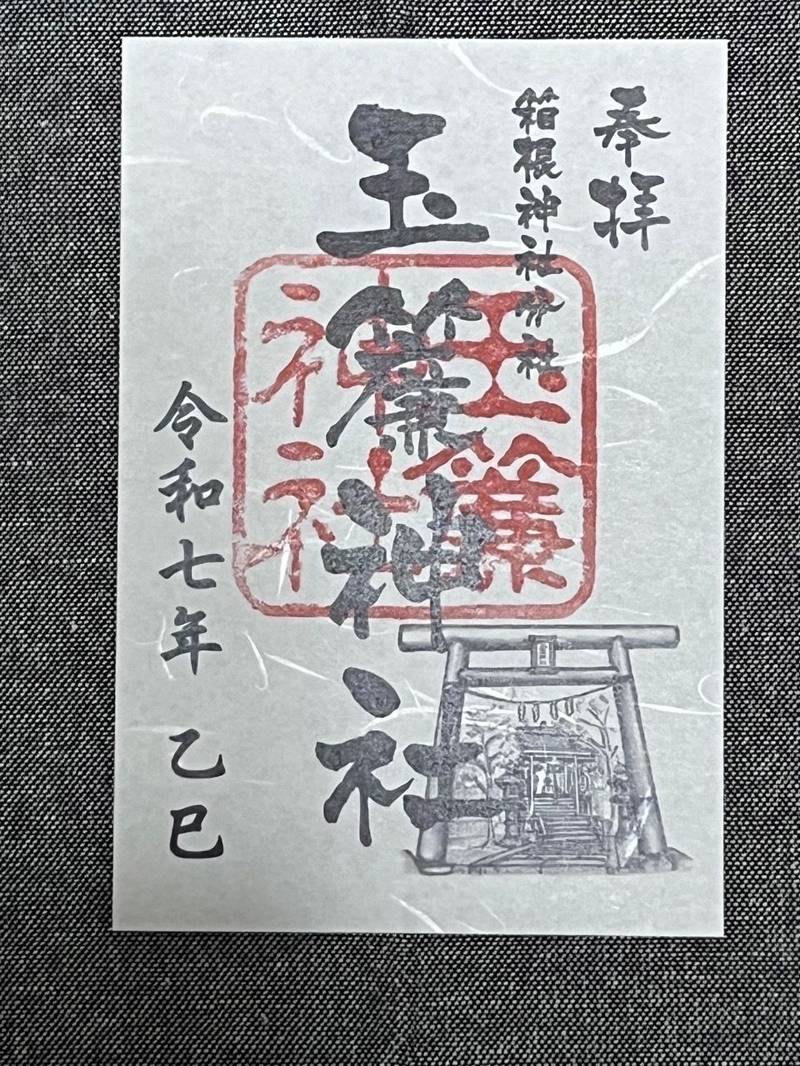 奉拝
箱根神社分社
玉簾神社
玉簾
神社
令和七年 乙巳